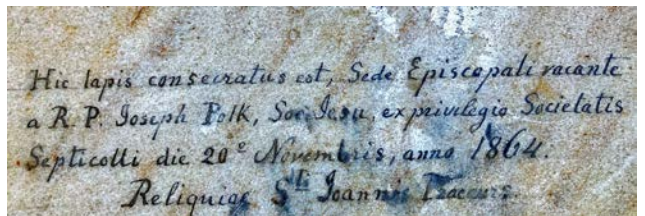 Hic lapis consecratus est, Sede Episcopali vacante
a R. P. Joseph Polk, Soc. Jesu, ex privilegio Societatis
Septicolli die 20º Novembris, anno 1864.
Reliquiae Sti Joannis